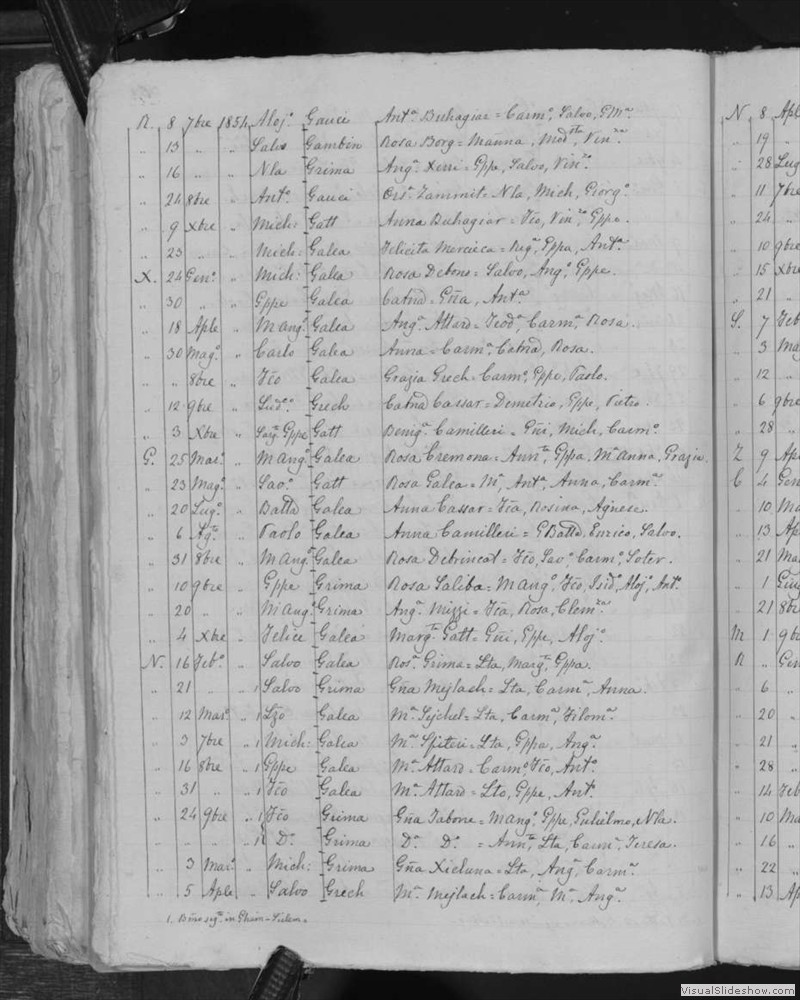 R. 8 7bre 1854 Aloj.º Gauci Ant.ª Buhagiar = Carm.º, Salvo, G.M.ª
„ 13 „ „ Salvo Gambin Rosa Borg = Manna, Mod.sta, Vin.za
„ 16 „ „ Nla Grima Ang.ª Xerri = Gppa, Salvo, Vin.zo
„ 24 8bre „ Ant.º Gauci Zammit = Nla, Mich, Giorg.º
„ 9 Xbre „ Mich: Gatt Anna Buhagiar = Fco, Vin.zo, Gppe.
„ 23 „ „ Mich: Galea Felicita Mercieca = Gppa, Ant.ª
X. 24 Gen.º „ Mich: Galea Rosa Debono = Salvo, Ang.º, Gppe.
„ 30 „ „ Gppe Galea Catna = Gña, Ant.ª
„ 18 Aple „ M.Ang.º Galea Ang.ª Attard = Teod.ª, Carm.ª, Rosa.
„ 30 Mag.º „ Carlo Galea Anna = Carm.ª, Catna, Rosa.
„ „ 8bre „ Fco Galea Grazia Grech = Carm.º, Gppe, Paolo.
„ 12 9bre „ Lud.co Grech Catna Cassar = Demetrio, Gppe, Pietro.
„ 3 Xbre „ Gppe Gatt Benig.ª Camilleri = Gñi, Mich, Carm.º
G. 25 Mar.º „ M.Ang.º Galea Rosa Cremona = Ann.ta, Gppa, M.ª Anna, Grazia.
„ 23 Mag.º „ Sav.º Gatt Rosa Galea = M.ª, Ant.ª, Anna, Carm.ª
„ 20 Lug.º „ Batta Galea Anna Cassar = Fca, Rosina, Agnese.
„ 6 Ag.to „ Paolo Galea Anna Camilleri = GBatta, Enrico, Salvo.
„ 31 8bre „ M.Ang.º Galea Rosa Debrincat = Fco, Sav.º, Carm.º, Soter.
„ 10 9bre „ Gppe Grima Rosa Saliba = M.Ang.º, Fco, Isid.º, Aloj.º, Ant.º
„ 20 „ „ M.Ang.º Grima Ang.ª Mizzi = Fca, Rosa, Clem.za
„ 4 Xbre „ Felice Galea Marg.ta Gatt = Gñi, Gppe, Aloj.º
N. 16 Feb.º „ Salvo Galea Ros.ª Grima = Lta, Marg.ta, Gppa.
„ 21 „ „ 1 Salvo Grima Gña Mejlach = Lta, Carm.ª, Anna.
„ 12 Mar.º „ 1 Lzo Galea M.ª Sejchel = Lta, Carm.ª, Filom.ª
„ 3 7bre „ 1 Mich: Galea M.ª Spiteri = Lta, Gppa, Ang.ª
„ 16 8bre „ 1 Gppe Galea M.ª Attard = Carm.º, Fco, Ant.º
„ 31 „ „ 1 Fco Galea M.ª Attard = Lto, Gppe, Ant.º
„ 24 9bre „ 1 Fco Grima Gña Tabone = M.Ang.º, Gppe, Gulielmo, Nla.
„ „ „ „ 1 D.º Grima D.º D.º = Ann.ta, Lta, Carm.ª, Teresa.
„ 3 Mar.º „ Mich: Grima Gña Xicluna = Lta, Ang.ª, Carm.ª
„ 5 Aple „ Salvo Grech M.ª Mejlach = Carm.ª, M.ª, Ang.ª
1. in Ghain-Sielem =
N 8 Aple
„ 19 „
„ 28 Lug
„ 11 7bre
„ 24 „
„ 10 9bre
„ 15 Xbre
„ 21 „
S. 7 Feb
„ 3 Mag
„ 12 „
„ 6 9bre
„ 28 „
Z 9 Apl
C 4 Gen
„ 10 Ma
„ 13 Apl
„ 21 Mag
„ 1 Giug
„ 21 8bre
M 1 9bre
R „ Gen
„ 6 „
„ 20 „
„ 21 „
„ 28 „
„ 14 Feb
„ 10 Ma
„ 16 „
„ 22 „
„ 13 Ap
VisualSlideshow.com